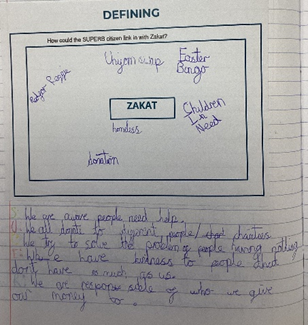 DEFINING
How could the SUPERB citizen link in with Zakat?
Easter
Bingo
ZAKAT
Children
In
Need
kindness
donation
We are aware people need help.
We all donate to diffrent people/ charities
We try to solve the problem of people having nothing
We have kindness to people that
don't have as much as us.
We are response sible of who we give
our money to.